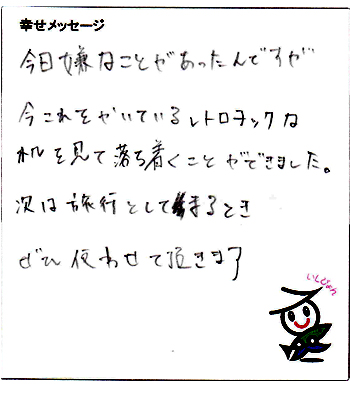 幸せメッセージ
今日嫌なことがあったんですが
今これをかいているレトロチックな
ホテルを見て落ち着くことができました。
次は旅行として来るとき
ぜひ使わせて頂きます
いしぴょん